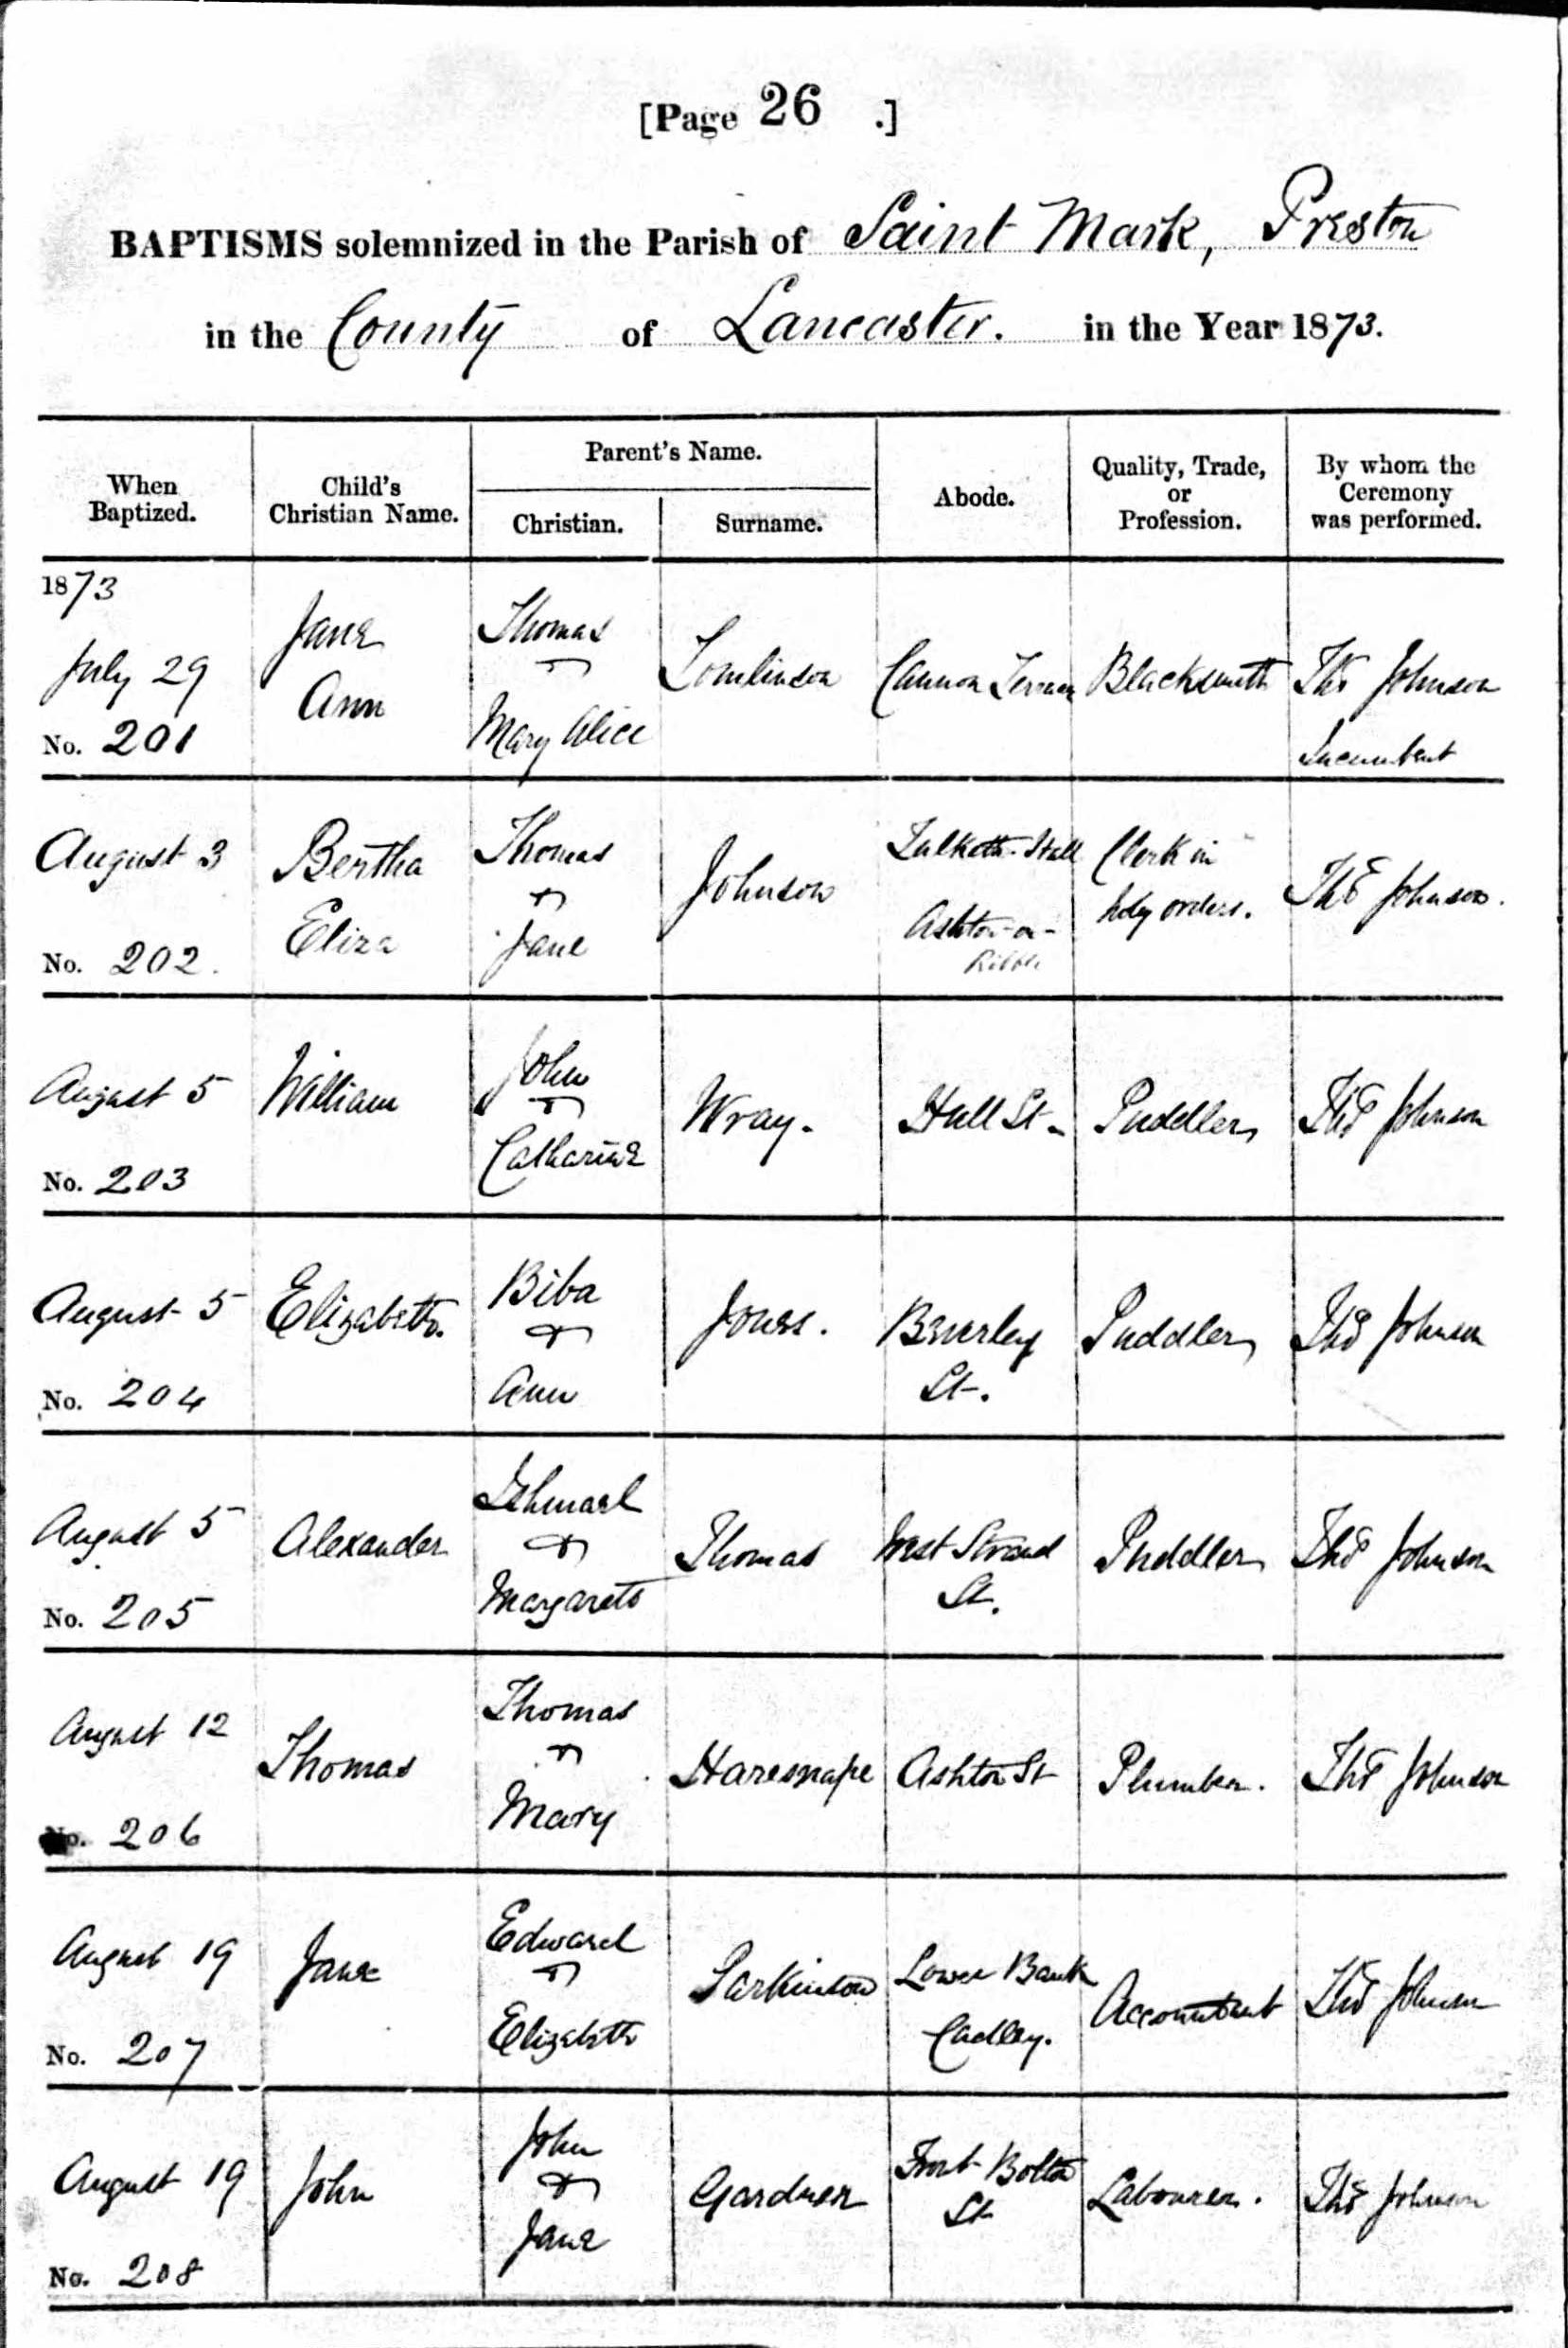 [Page 26 .]
BAPTISMS solemnized in the Parish of Saint Mark, Preston
in the County of Lancaster. in the Year 1873.
When Baptized.
Child's Christian Name.
Parent's Name.
Christian.
Surname.
Abode.
Quality, Trade, or Profession.
By whom the Ceremony was performed.
1873
July 29
No. 201
Jane
Ann
Thomas
&
Mary Alice
Tomlinson
Cannon Terrace
Blacksmith
Thos Johnson
Incumbent
August 3
No. 202.
Bertha
Eliza
Thomas
&
Jane
Johnson
Tulketh-Hall
Ashton-on-
Ribble
Clerk in
holy orders.
Thos Johnson.
August 5
No. 203
William
John
&
Catharine
Wray.
Hull St.
Puddler
Thos Johnson
August 5
No. 204
Elizabeth.
Biba
&
Ann
Jones.
Beverley
St.
Puddler
Thos Johnson
August 5
No. 205
Alexander
Ishmael
&
Margaret
Thomas
West Strand
St.
Puddler
Thos Johnson
August 12
No. 206
Thomas
Thomas
&
Mary
Haresnape
Ashton St
Plumber.
Thos Johnson
August 19
No. 207
Jane
Edward
&
Elizabeth
Parkinson
Lower Bank
Cadley.
Accountant
Thos Johnson
August 19
No. 208
John
John
&
Jane
Gardner
Front Bolton
St
Labourer.
Thos Johnson